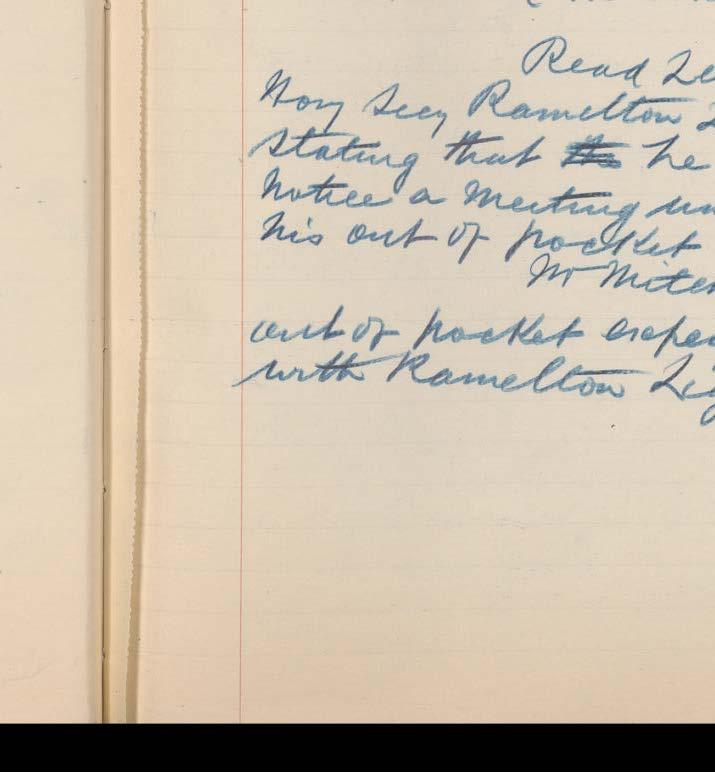 Read Le
Hony Secy Ramelton L
stating that he
notice a meeting un
his out of pocket
Mr Mitch
out of pocket expe
with Ramelton Lig